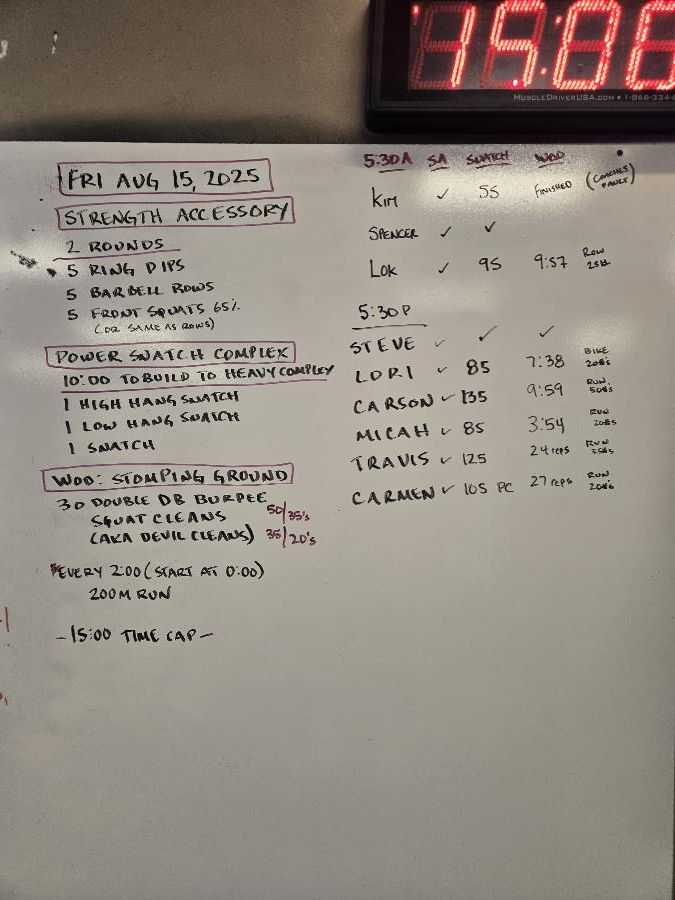 15:06
MUSCLEDRIVERUSA.COM • 1-866-334-
FRI AUG 15, 2025
STRENGTH ACCESSORY
2 ROUNDS
5 RING DIPS
5 BARBELL ROWS
5 FRONT SQUATS 65%
(OR SAME AS ROWS)
POWER SNATCH COMPLEX
10:00 TO BUILD TO HEAVY COMPLEX
1 HIGH HANG SNATCH
1 LOW HANG SNATCH
1 SNATCH
WOD: STOMPING GROUND
30 DOUBLE DB BURPEE
SQUAT CLEANS 50/35's
(AKA DEVIL CLEANS) 35/20's
*EVERY 2:00 (START AT 0:00)
200M RUN
-15:00 TIME CAP-
5:30A SA SNATCH WOD
KIM ✓ 55 FINISHED (COACHES FAULT)
SPENCER ✓ ✓
LOK ✓ 95 9:57 ROW
5:30P
STEVE ✓ ✓ ✓
LORI ✓ 85 7:38 BIKE 20#'s
CARSON ✓ 135 9:59 RUN 50#s
MICAH ✓ 85 3:54 RUN 20#s
TRAVIS ✓ 125 24 reps RUN 35#s
CARMEN ✓ 105 PC 27 reps RUN 20#'s